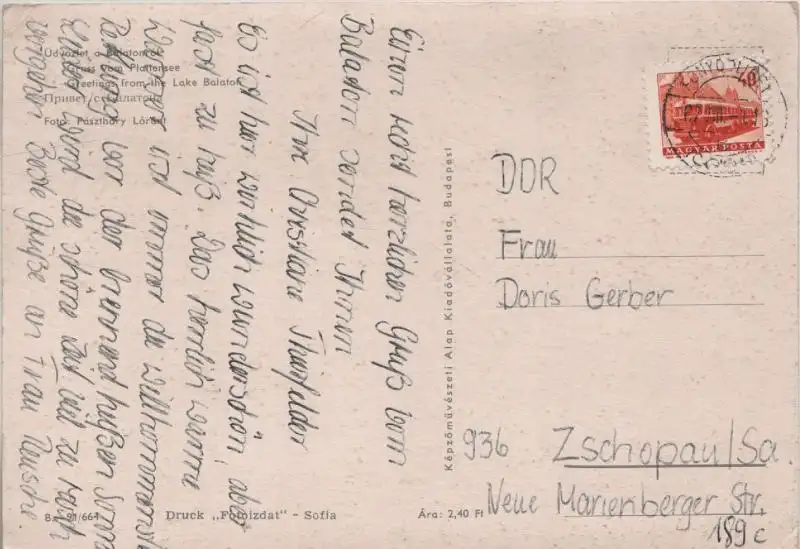 Üdvözlet a Balatonról
Gruss vom Plattensee
Greetings from the Lake Balaton
Привет с Балатона
Foto: Pászthory Loránt
Einen recht herzlichen Gruß vom
Balaton sendet Ihnen
Ihre Christiane Theifelder
Es ist hier wirklich wunderschön, aber
fast zu heiß. Das herrlich warme
Wasser ist immer die willkommenste
Rettung vor der brennend heißen Sonne
Leider wird die schöne Zeit viel zu rasch
vergehen. Beste Grüße an Frau
Bz. 91/661
Druck „Fotoizdat" - Sofia
Ára: 2,40 Ft
Képzőművészeti Alap Kiadóvállalata, Budapest
40
MAGYAR POSTA
DDR
Frau
Doris Gerber
936 Zschopau/Sa.
Neue Marienberger Str.
189c